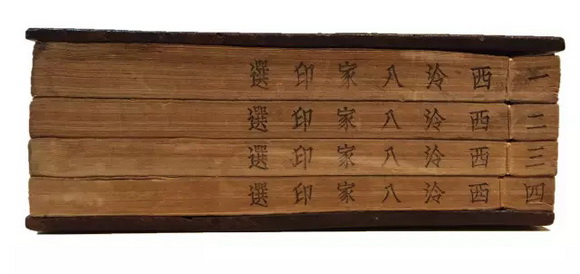 一西泠八家印選
二西泠八家印選
三西泠八家印選
四西泠八家印選